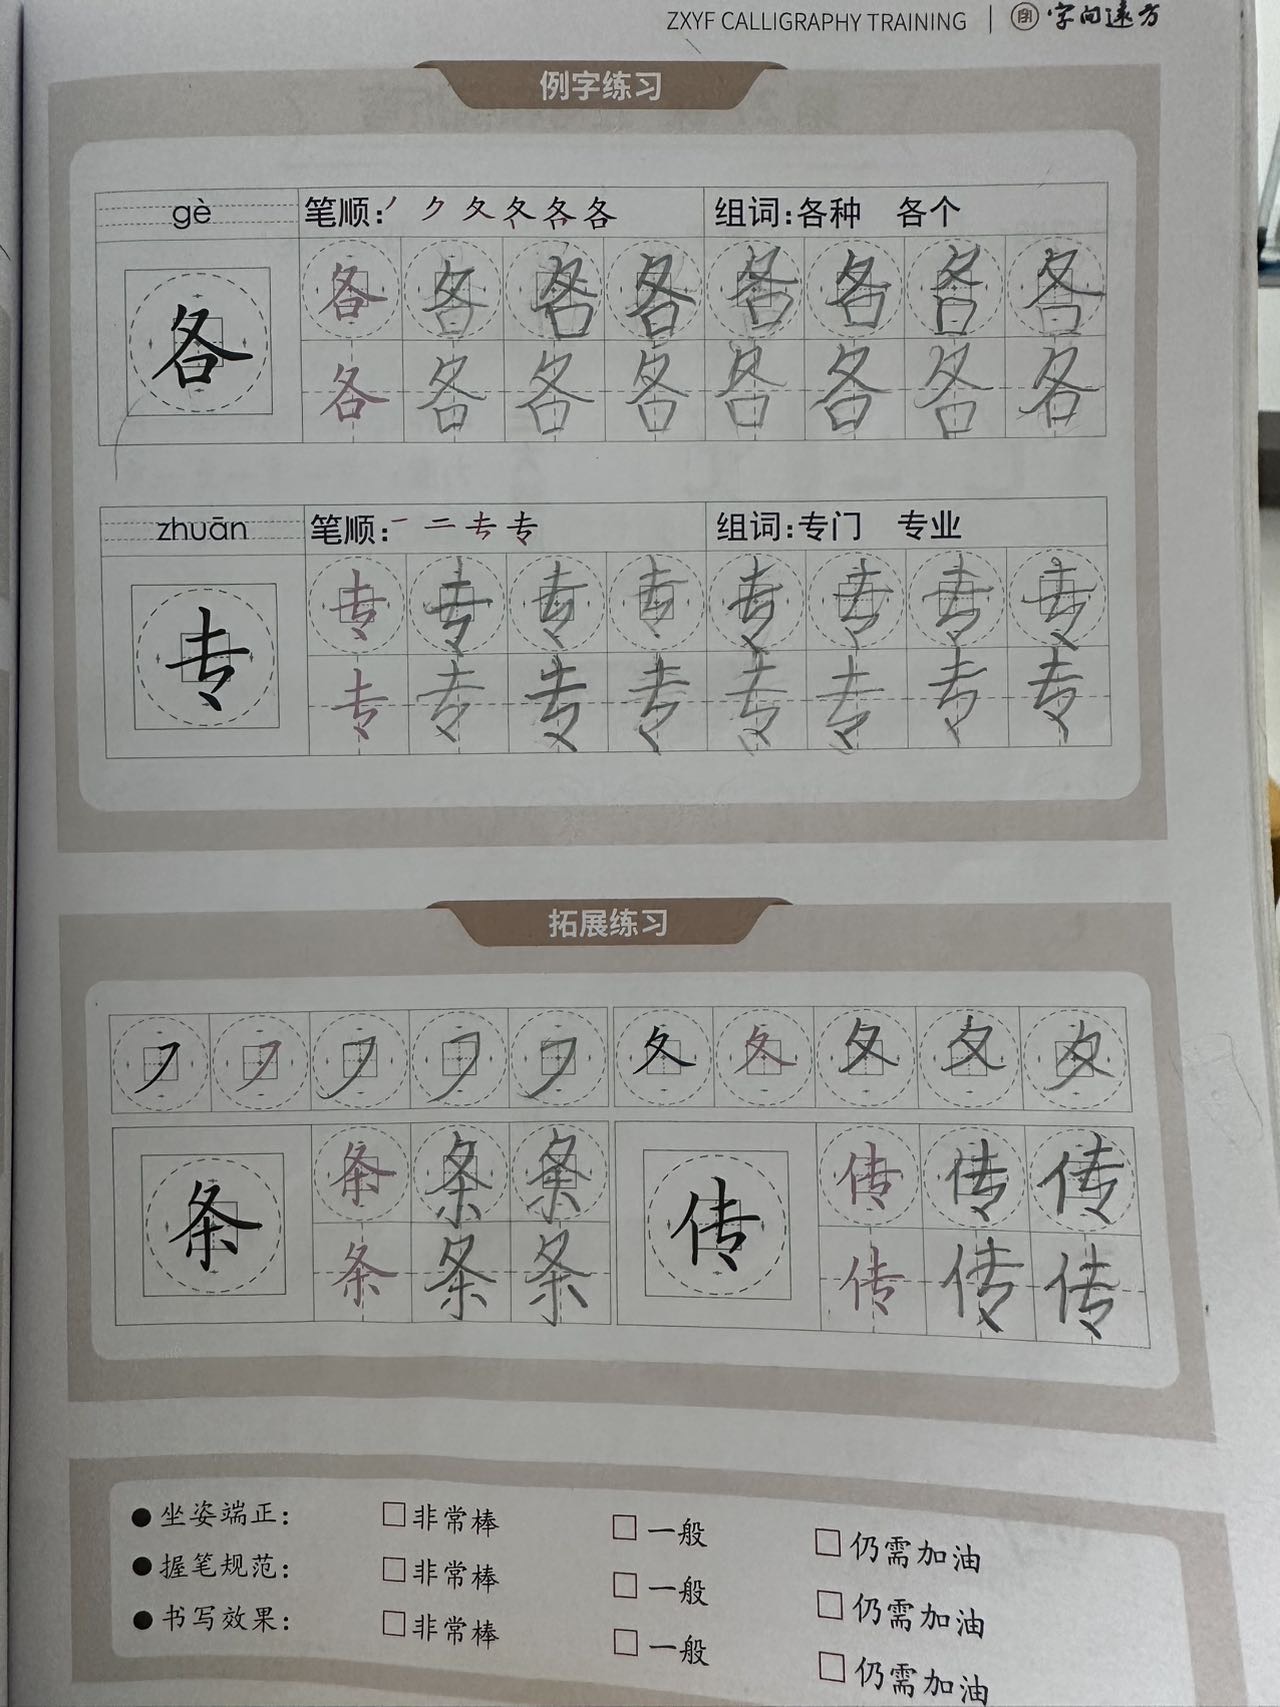 ZXYF CALLIGRAPHY TRAINING | 字间遠方
例字练习
gè 笔顺: 丿 ク 夂 夂 各 各 组词:各种 各个
各 各 各 各 各 各 各 各 各
各 各 各 各 各 各 各 各
zhuān 笔顺: 一 二 专 专 组词:专门 专业
专 专 专 专 专 专 专 专 专
专 专 专 专 专 专 专 专
拓展练习
夂 夂 夂 夂 夂
条 条 条 条 传 传 传 传
条 条 条 传 传 传
●坐姿端正: □非常棒 □一般 □仍需加油
●握笔规范: □非常棒 □一般 □仍需加油
●书写效果: □非常棒 □一般 □仍需加油